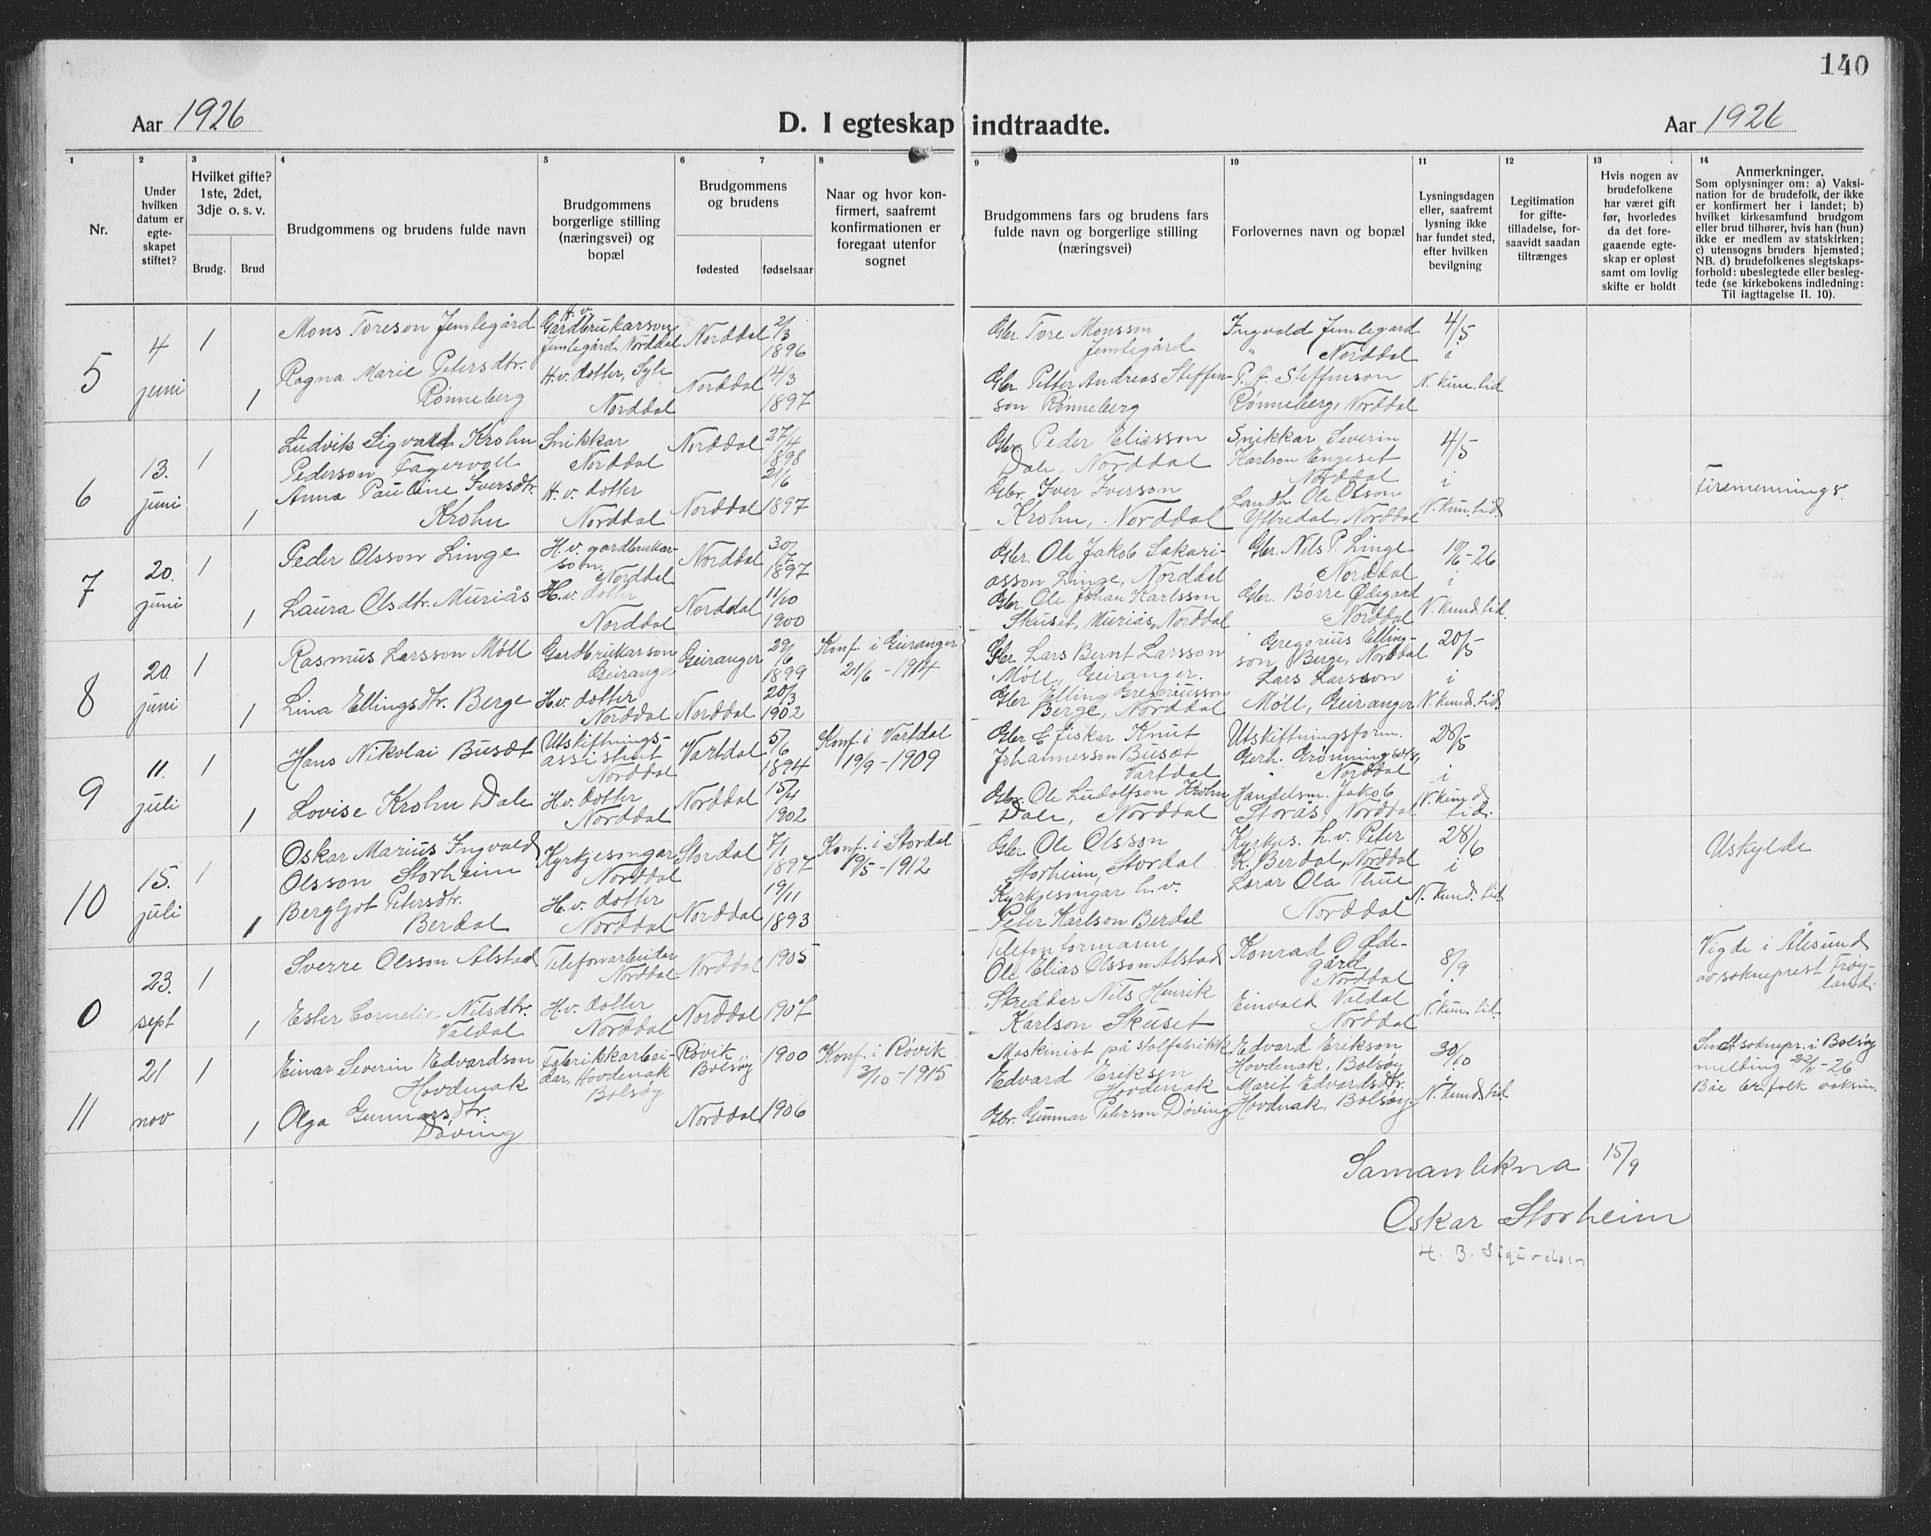 140
Aar 1926
D. I egteskap indtraadte.
Aar 1926
1 2 3 4 5 6 7 8 9 10 11 12 13 14
Nr.
Under hvilken datum er egte-skapet stiftet?
Hvilket gifte? 1ste, 2det, 3dje o. s. v.
Brudg. Brud
Brudgommens og brudens fulde navn
Brudgommens borgerlige stilling (næringsvei) og bopæl
Brudgommens og brudens
fødested fødselsaar
Naar og hvor kon-firmert, saafremt konfirmationen er foregaat utenfor sognet
Brudgommens fars og brudens fars fulde navn og borgerlige stilling (næringsvei)
Forlovernes navn og bopæl
Lysningsdagen eller, saafremt lysning ikke har fundet sted, efter hvilken bevilgning
Legitimation for gifte-tilladelse, for-saavidt saadan tiltrænges
Hvis nogen av brudefolkene har været gift før, hvorledes da det fore-gaaende egte-skap er opløst samt om lovlig skifte er holdt
Anmerkninger.
Som oplysninger om: a) Vaksi-nation for de brudefolk, der ikke er konfirmert her i landet; b) hvilket kirkesamfund brudgom eller brud tilhører, hvis han (hun) ikke er medlem av statskirken; c) utensogns bruders hjemsted; NB. d) brudefolkenes slegtskaps-forhold: ubeslegtede eller besleg-tede (se kirkebokens indledning: Til iagttagelse II. 10).
5
4 juni
1
Mons Toreson Jemlegård
H. v. Gardbrukarson Jemlegård, Norddal
Norddal
2/3 1896
Gbr. Tore Monsson Jemlegård
Ingvald Jemlegard " Norddal
4/5 i N. kun. tid
1
Ragna Marie Petersdtr. Rønneberg
H. v. dotter, Sylte Norddal
Norddal
14/3 1897
Gbr Petter Andreas Steffen-son Rønneberg
P. A. Steffenson Rønneberg, Norddal
6
13. juni
1
Ludvik Sigvald Krohn Pederson Fagervoll
Snikkar Norddal
Norddal
27/4 1898
Gbr Peder Eliesson Dale, Norddal
Snikkar Severin Karlson Engeset Norddal
4/5 i N. kun. tid.
1
Anna Pauline Iversdtr. Krohn
H. v. dotter Norddal
Norddal
21/6 1897
Gbr. Iver Iverson Krohn, Norddal
Landh. Ole Olson Ytredal, Norddal
Firemennings.
7
20. juni
1
Peder Olsson Linge
H. v. gardbrukar-son, Norddal
Norddal
30/7 1897
Gbr. Ole Jakob Sakari-asson Linge, Norddal
Gbr. Nels P. Linge Norddal
10/6-26 i N. kund. tid.
1
Laura Olsdtr. Muriås
H. v. dotter Norddal
Norddal
11/10 1900
Gbr. Ole Johan Karlsson Skuset, Muriås, Norddal
Gbr. Børre Ødegård Norddal
8
20. juni
1
Rasmus Larsson Møll
Gardbrukarson Geiranger
Geiranger
29/6 1899
Konf. i Geiranger 21/6 - 1914
Gbr Lars Bernt Larsson Møll, Geiranger.
Gregorius Elling-son Berge, Norddal
20/5- i N. kund. tid.
1
Lina Ellingsdtr. Berge
H. v. dotter Norddal
Norddal
20/3 1902
Gbr Elling Gregoriusson Berge, Norddal
Lars Larsson Møll, Geiranger
9
11. juli
1
Hans Nikolai Busæt
Utskiftnings-assistent Norddal
Vartdal
5/6 1894
Konf. i Vartdal 19/9 - 1909
Gbr & fiskar Knut Johannesson Busæt Vartdal
Utskiftningsform. Gerh. Grønningsæter, Norddal
28/5 i N. kund. tid.
1
Lovise Krohn Dale
H. v. dotter Norddal
Norddal
15/4 1902
Gbr. Ole Ludolfson Krohn Dale, Norddal
Handelsm. Jakob Storås, Norddal
10
15. juli
1
Oskar Marius Ingvald Olsson Storheim
Kyrkjesongar Norddal
Stordal
7/1 1897
Konf. i Stordal 19/5 - 1912
Gbr Ole Olsson Storheim, Stordal
Kyrkjes. h. v. Peter K. Berdal, Norddal
28/6 i N. kund. tid
1
Bergljot Petersdtr. Berdal
H. v. dotter Norddal
Norddal
19/11 1893
Kyrkjesongar h. v. Peter Karlson Berdal
Lærar Ola Thue Norddal
Uskylde
0
23. sept
1
Sverre Olsson Alstad
Telefonarbeider Norddal
Norddal
1905
Telefonformann Ole Elias Olsson Alstad
Konrad O. Øde-gård, Norddal
8/9 i N. kun. tid.
1
Ester Cornelie Nilsdtr. Valdal
H. v. dotter Norddal
Norddal
1907
Skreddar Nils Henrik Karlson Skuset
Einvald Valdal Norddal
Vigde i Ålesund av sokneprest Frøy-land
11
21 nov
1
Einar Severin Edvardson Hovdenak
Fabrikkarbei-dar, Hovdenak Bolsøy
Røvik Bolsøy
1900
Konf. i Røvik 3/10 - 1915
Maskinist på stolfabrikk Edvard Erikson Hovdenak
Edvard Erikson Hovdenak, Bolsøy
30/10 i N. kund. tid
1
Olga Gunnarsdtr. Døving
Norddal
1906
Gbr. Gunnar Peterson Døving
Marit Edvardsdtr. Hovdenak, Bolsøy
soknepr. i Bolsøy melding 22/11-26 folk vaksin.
Samanlikna 15/9
Oskar Storheim
H. B. Sigurdson